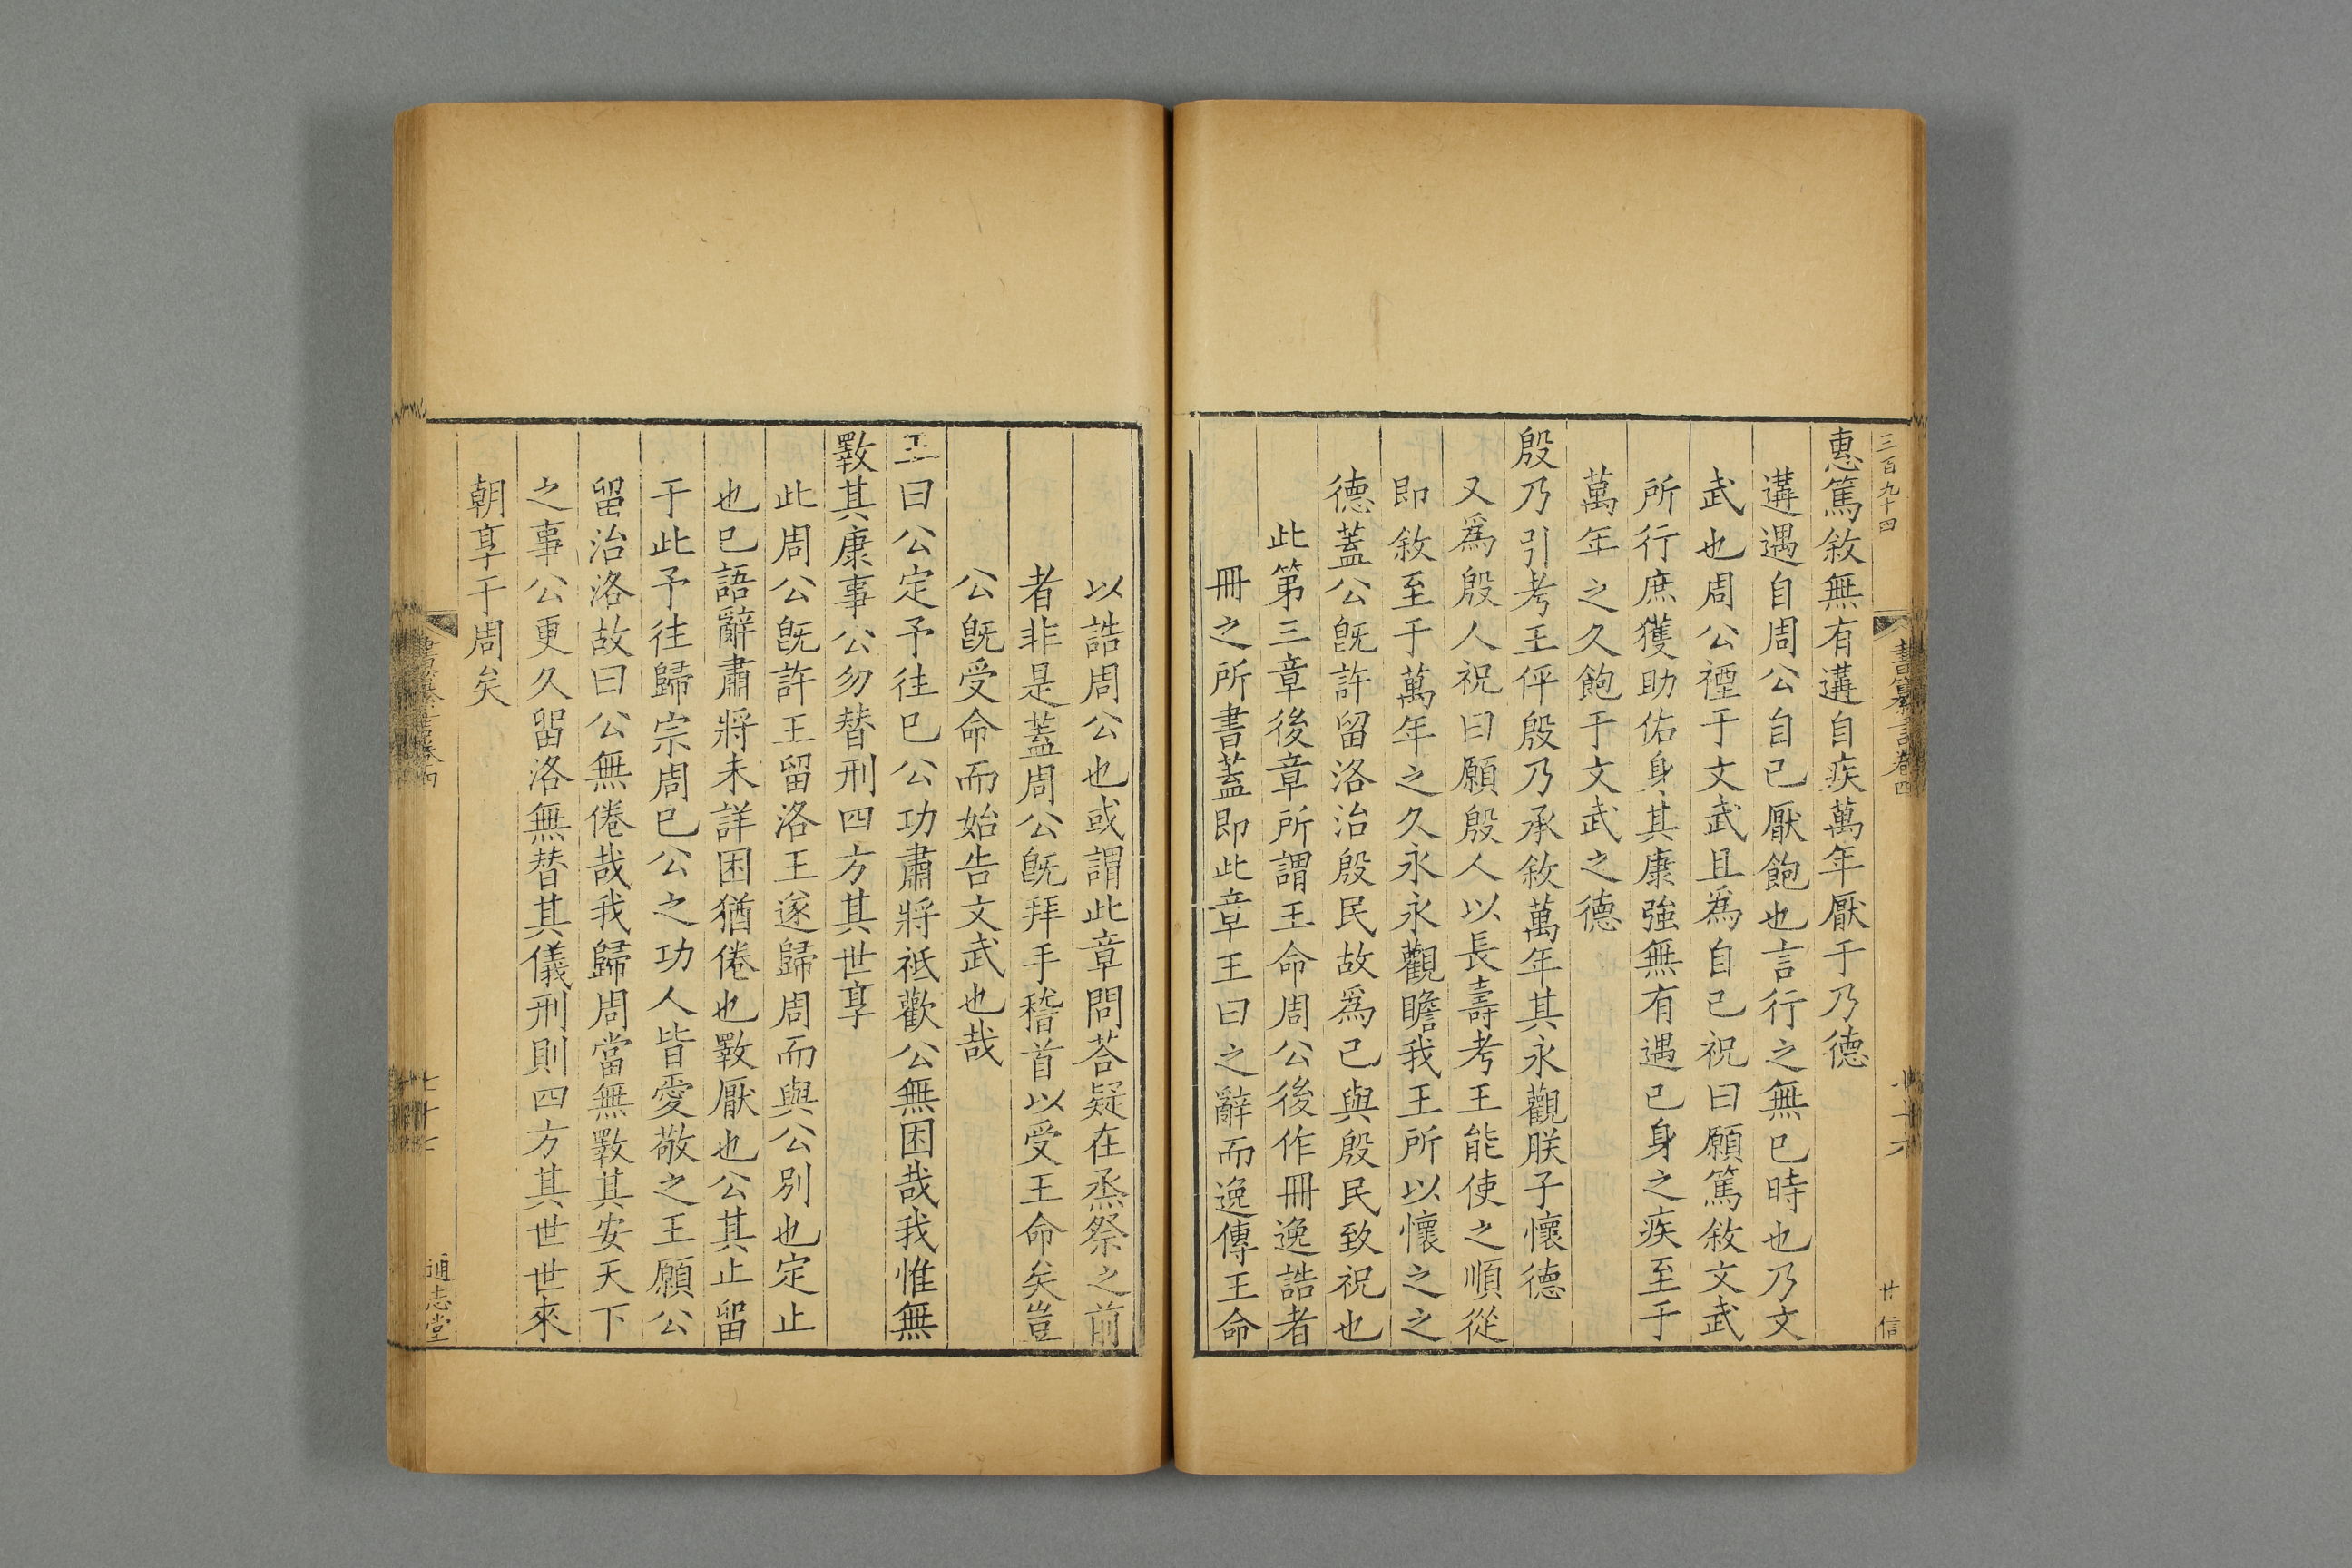 三百九十四
書纂言卷四
廿
信
惠篤敘無有遘自疾萬年厭于乃德
遘遇自周公自已厭飽也言行之無已時也乃文
武也周公禋于文武且爲自己祝曰願篤敘文武
所行庶獲助佑身其康強無有遇已身之疾至于
萬年之久飽于文武之德
殷乃引考王伻殷乃承敘萬年其永觀朕子懷德
又爲殷人祝曰願殷人以長壽考王能使之順從
即敘至于萬年之久永永觀瞻我王所以懷之之
德蓋公旣許留洛治殷民故爲己與殷民致祝也
此第三章後章所謂王命周公後作冊逸誥者
冊之所書蓋即此章王曰之辭而逸傳王命
以誥周公也或謂此章問荅疑在烝祭之前
者非是蓋周公旣拜手稽首以受王命矣豈
公旣受命而始告文武也哉
王曰公定予往已公功肅將祗歡公無困哉我惟無
斁其康事公勿替刑四方其世享
此周公旣許王留洛王遂歸周而與公別也定止
也已語辭肅將未詳困猶倦也斁厭也公其止留
于此予往歸宗周已公之功人皆愛敬之王願公
留治洛故曰公無倦哉我歸周當無斁其安天下
之事公更久留洛無替其儀刑則四方其世世來
朝享于周矣
通志堂